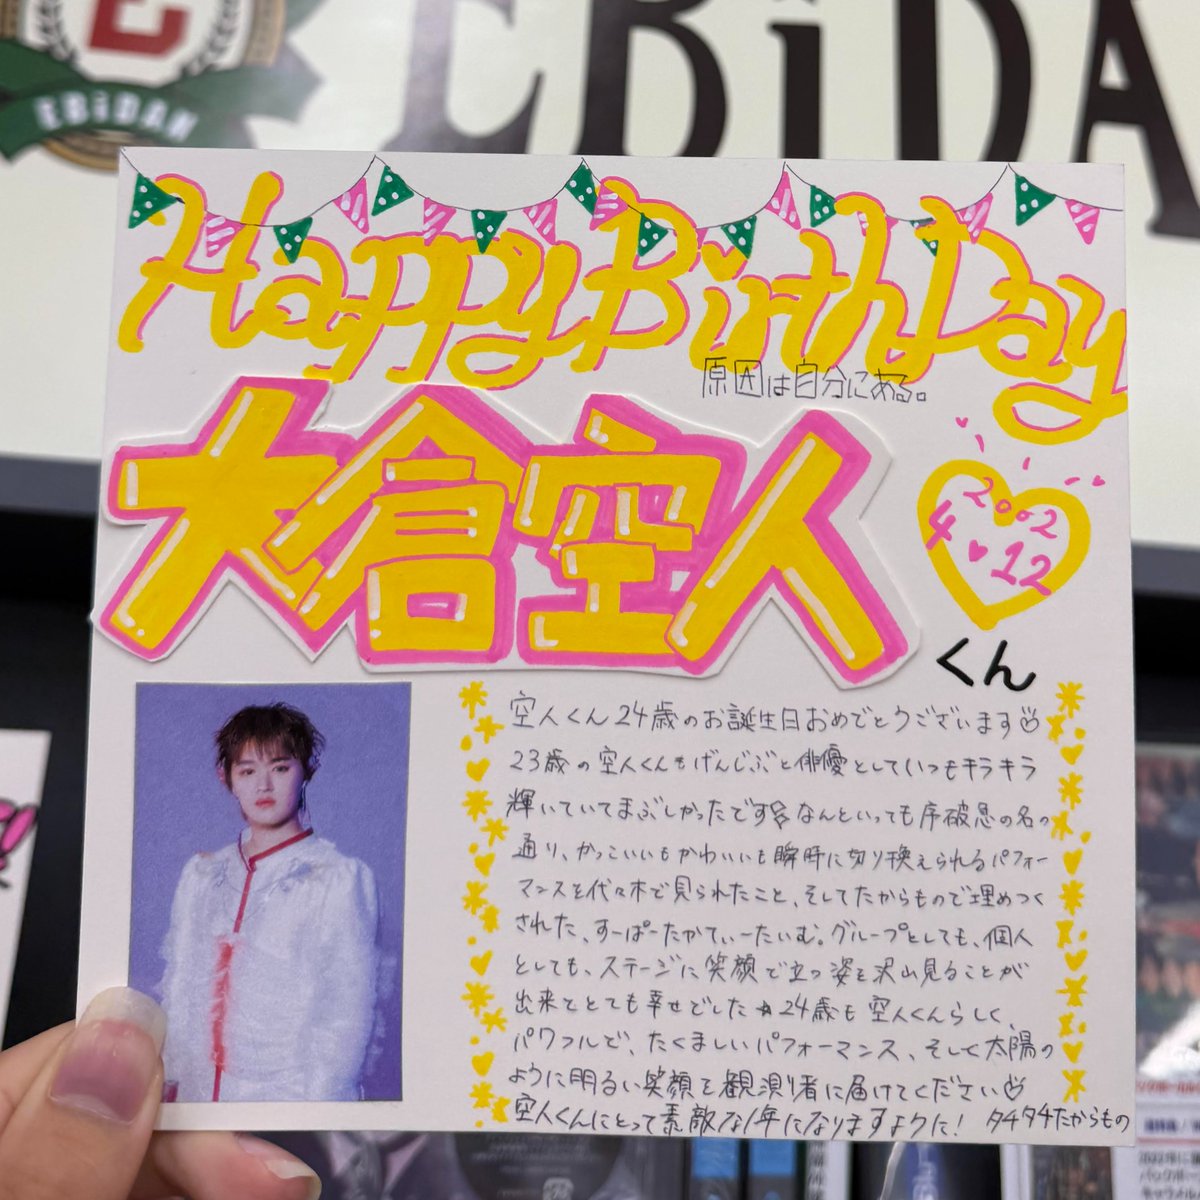 EBiDAN
EBiDA
Happy BirthDay
原因は自分にある。
大倉空人
くん
2002
4 12
空人くん24歳のお誕生日おめでとうございます
23歳の空人くんもげんじぶと俳優としていつもキラキラ
輝いていてまぶしかったです なんといっても序破急の名の
通り、かっこいいもかわいいも瞬時に切り換えられるパフォー
マンスを代々木で見られたこと、そしてたからもので埋めつく
された、すーぱーたかてぃーたいむ。グループとしても、個人
としても、ステージに笑顔で立つ姿を沢山見ることが
出来てとても幸せでした 24歳も空人くんらしく、
パワフルで、たくましいパフォーマンス、そして太陽の
ように明るい笑顔を観測者に届けてください
空人くんにとって素敵な1年になりますように! タチタチたからもの